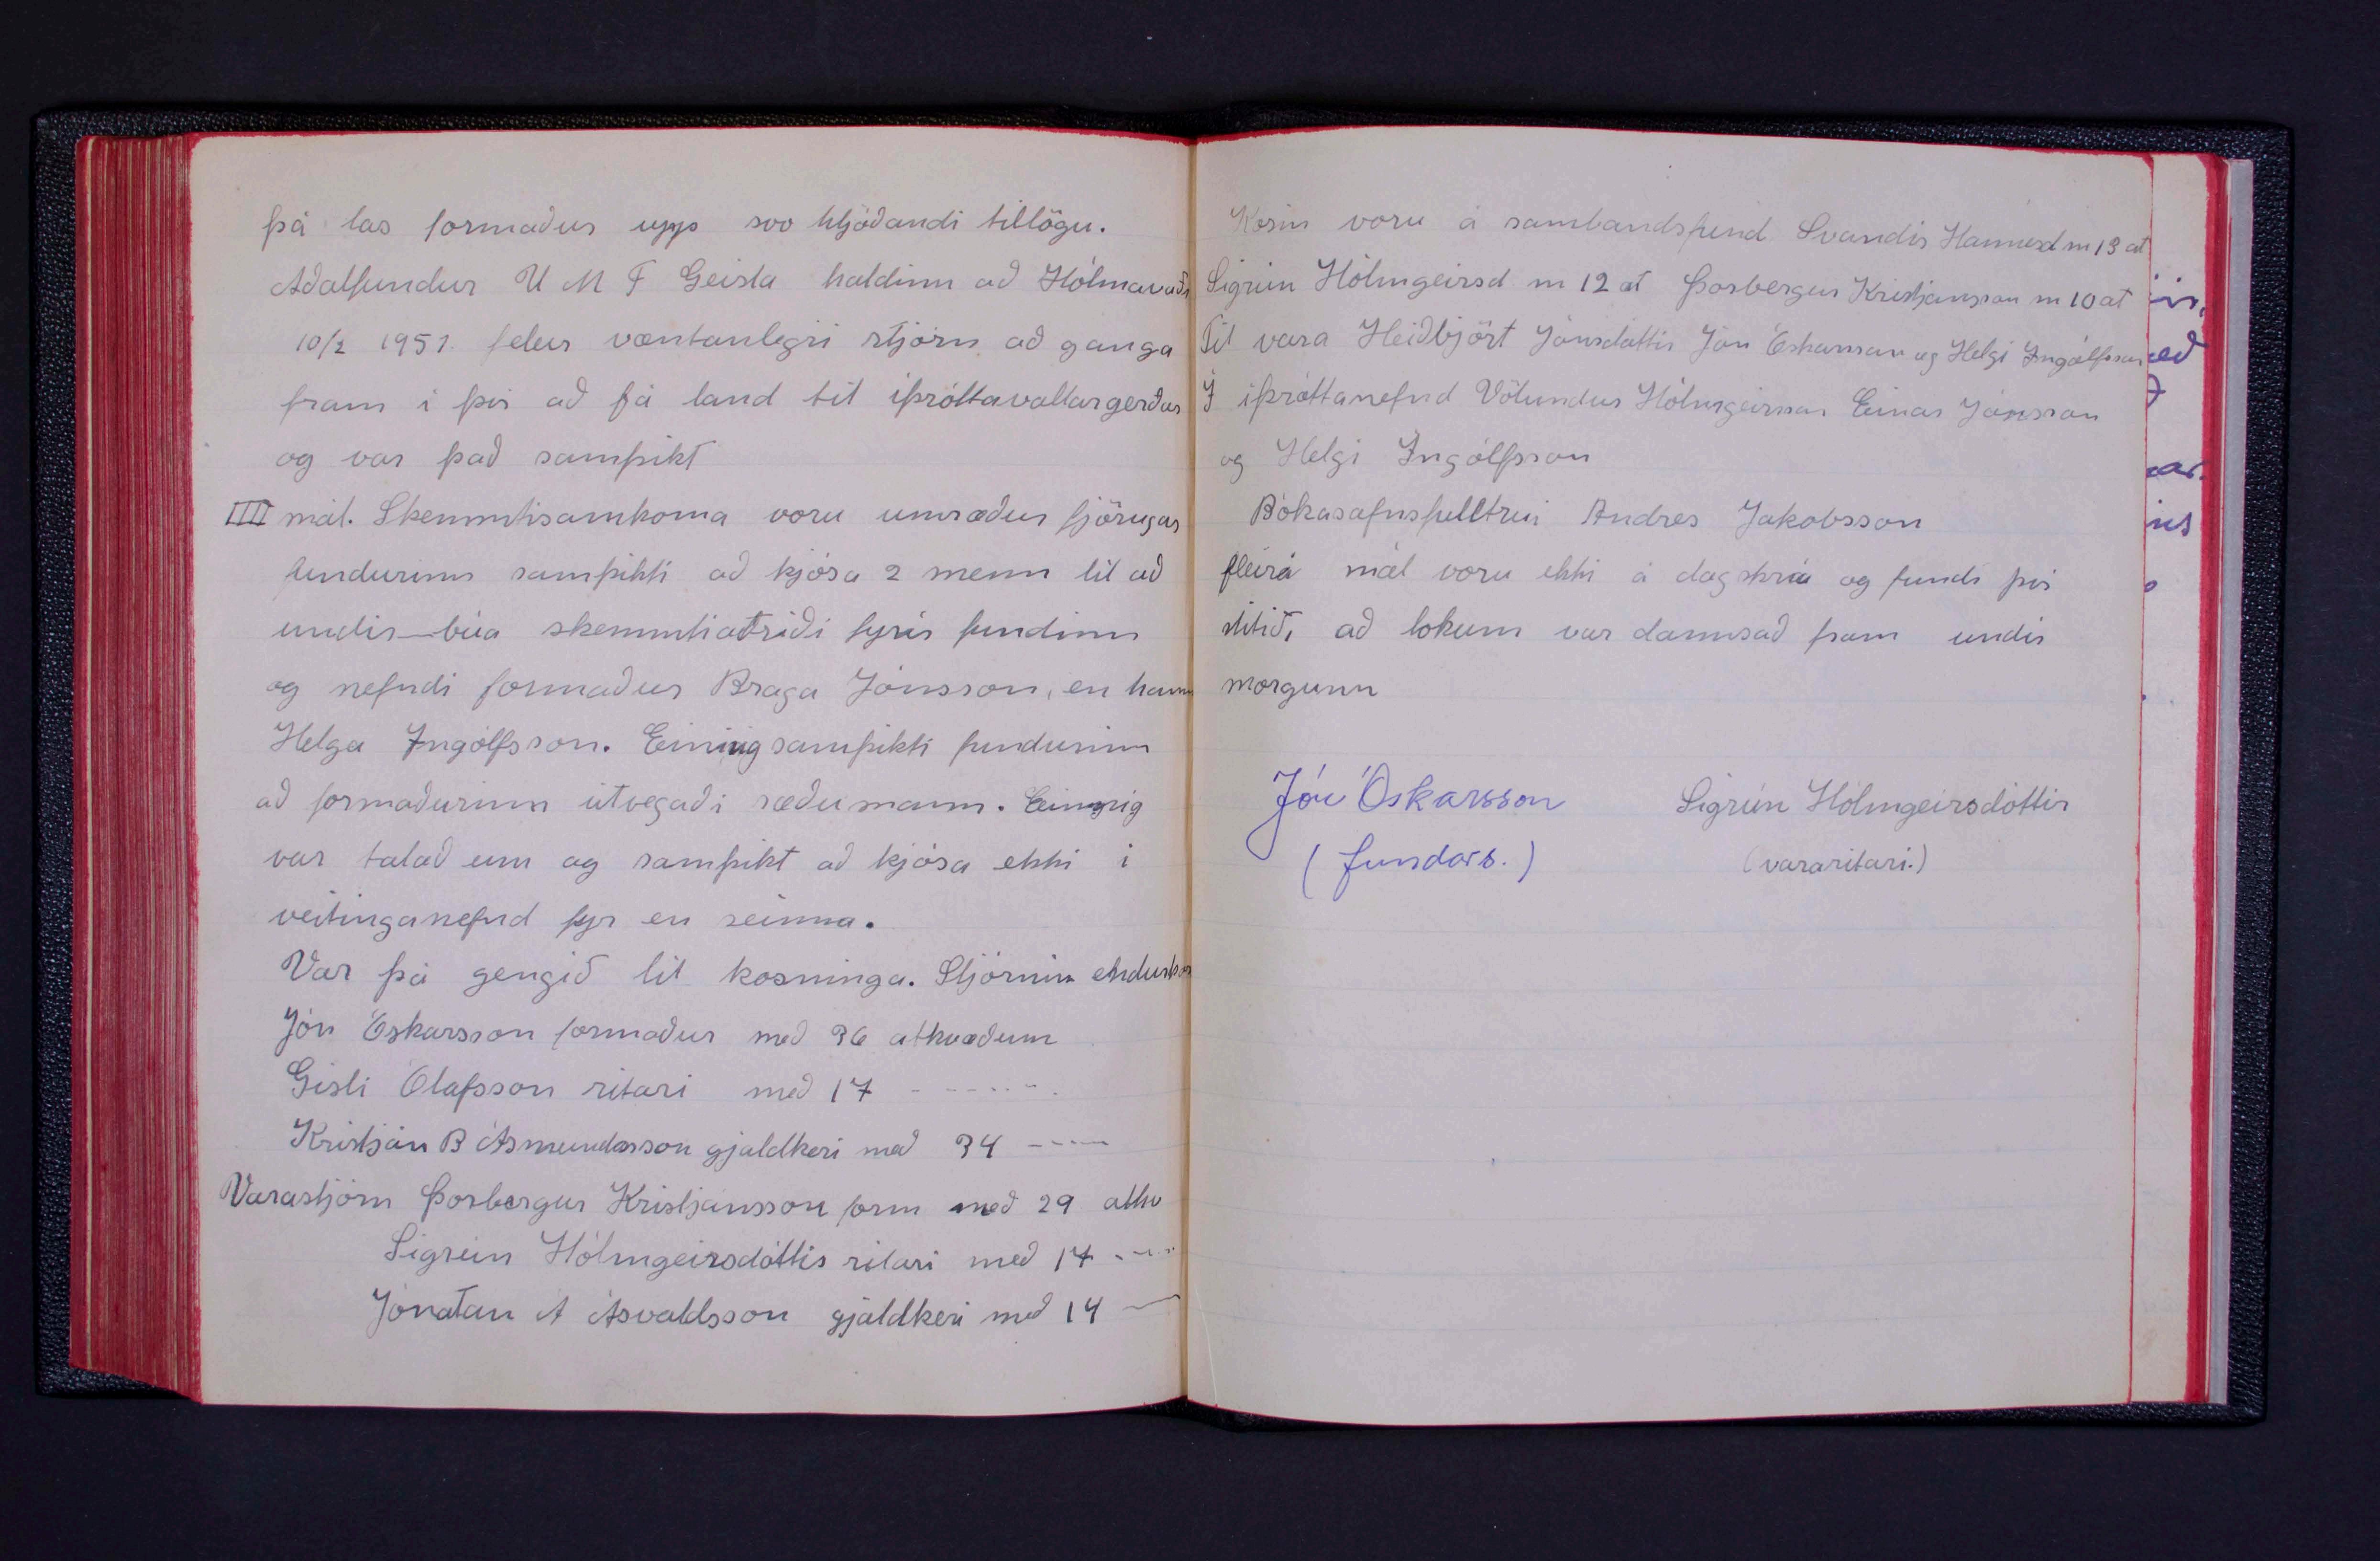 þá las formaður upp svo hljóðandi tillögu.
Aðalfundur U M F Geisla haldinn að Hólmavaði
10/2 1951. felur væntanlegri stjórn að ganga
fram i þvi að fá land til iþróttavallargerðar
og var það samþikt
IIII mál. Skemmtisamkoma voru umræður fjörugar
fundurinn samþikti að kjósa 2 menn til að
undir-búa skemmtiatriði fyrir fundinn
og nefndi formaður Braga Jónsson, en hann
Helga Ingólfsson. Einnig samþikti fundurinn
að formaðurinn útvegaði ræðumann. Einnig
var talað um og samþikt að kjósa ekki i
veitinganefnd fyr en seinna.
Var þá gengið til kosninga. Stjórnin endurkos
Jón Óskarsson formaður með 36 atkvæðum
Gísli Ólafsson ritari með 17 - - - - - -
Kristján B Ásmundsson gjaldkeri með 34 - - - -
Varastjórn Þorbergur Kristjánsson form með 29 atkv
Sigrún Hólmgeirsdóttir ritari með 14 - - -
Jónatan A Ásvaldsson gjaldkeri með 14 —
Kosin voru á sambandsfund Svandis Hannesd m 13 at
Sigrún Hólmgeirsd m 12 at Þorbergur Kristjánsson m 10 at
Til vara Heiðbjört Jónsdóttir Jón Óskarsson og Helgi Ingólfsson
Í iþróttanefnd Völundur Hólmgeirsson Einar Jónsson
og Helgi Ingólfsson
Bókasafnsfulltrúi Andres Jakobsson
fleira mál voru ekki á dagskrá og fundi þvi
slitið, að lokum var dannsað fram undir
morgunn
Jón Óskarsson Sigrún Hólmgeirsdóttir
(fundars.) (vararitari.)